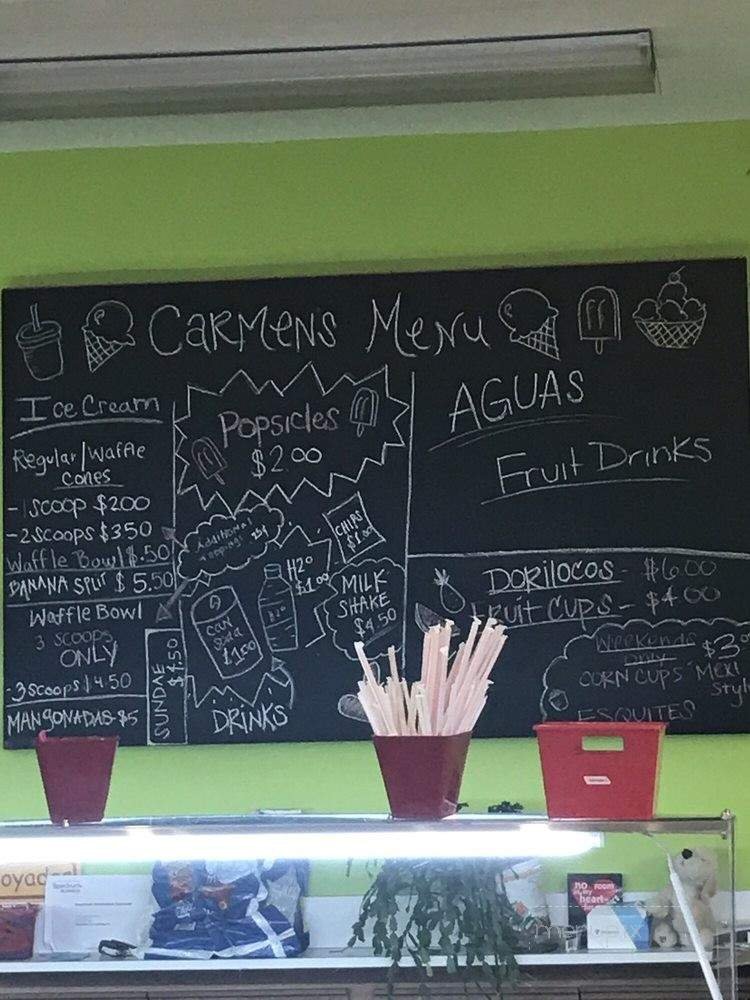 CARMENS MENU
Ice Cream
Regular/Waffle
Cones
-1 SCOOP $2.00
-2 SCOOPS $3.50
Waffle Bowl $.50
BANANA SPLIT $5.50
Waffle Bowl
3 SCOOPS
ONLY
-3 SCOOPS $4.50
MANGONADAS-$5
SUNDAE
$4.50
Popsicles
$2.00
Additional
toppings
CHIPS
$1.00
H2O
$1.00
H2O
CAN
Soda
$1.00
MILK
SHAKE
$4.50
DRINKS
AGUAS
Fruit Drinks
DORILOCOS - $6.00
FRUIT CUPS - $4.00
WEEKENDS
ONLY
$3
CORN CUPS "Mexi
Style
ESQUITES
oyada
no room
in my
heart